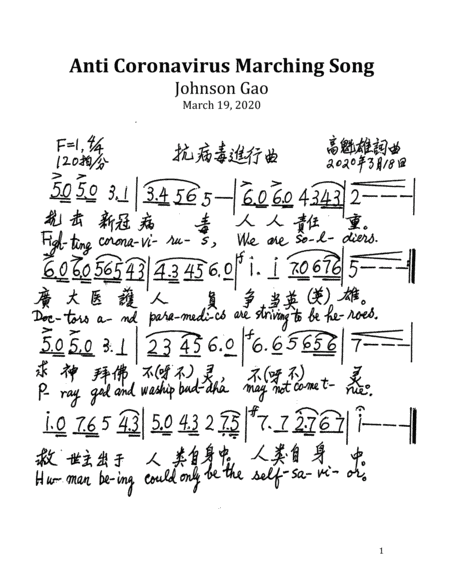 Anti Coronavirus Marching Song
Johnson Gao
March 19, 2020
F=1, 4/4
抗病毒進行曲
高魁雄詞曲
120拍/分
2020年3月18日
5.0 5.0 3.1 | 3.4 5 6 5 — | 6.0 6.0 4 3 4 3 | 2 — — — |
抗击新冠病毒人人責任重。
Figh-ting corona-vi-ru-s, We are so-l-diers.
6.0 6.0 5 6 5 4 3 | 4.3 4 5 6.0 | i. i 7.0 6 7 6 | 5 — — — |
廣大医護人員争当英(英)雄。
Doc-tors a-nd para-medi-cs are striving to be he-roes.
5.0 5.0 3.1 | 2 3 4 5 6.0 | 6.6 5 6 5 6 | 7 — — — |
求神拜佛不(呀不)灵,不(呀不)灵。
P-ray god and waship bud-dha may not come t-rue.
i.0 7.6 5 4.3 | 5.0 4.3 2 7.5 | #7.7 2.7 6 7 | i — — |
救世主出于人类自身中。人类自身中。
Hu-man be-ing could only be the self-sa-vi-or.
1